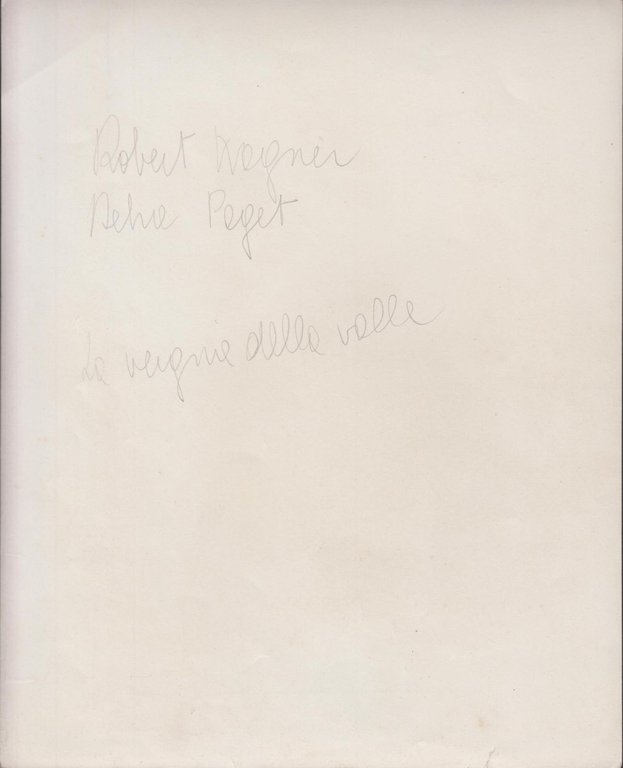 Robert Wagner
Debra Paget
La vergine della valle